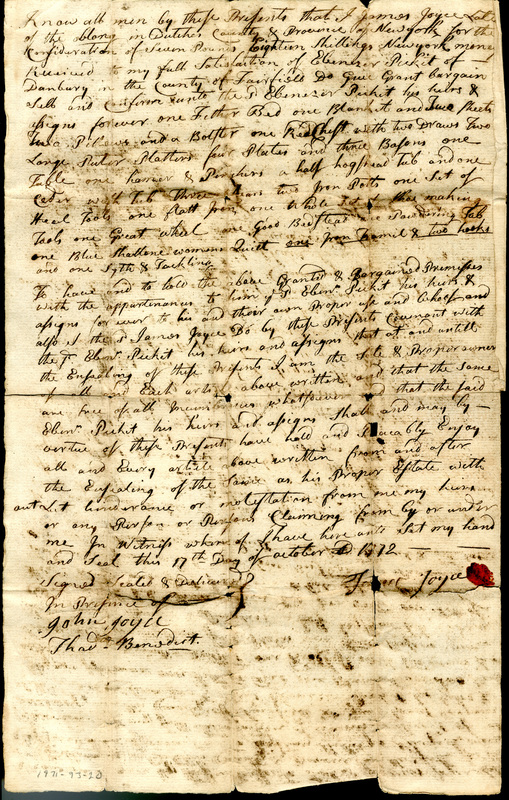 Know all men by these Presents that I James Joyce Late
of the oblong in Dutches County & Province of New york for the
Konsideration of Seven Pounds Eighteen Shillings New york money
Received to my full Satisfaction of Ebenezer Picket of
Danbury in the County of Fairfield Do Give Grant bargain
Sell and Confirm unto the Sd Ebenezer Picket his heirs &
assigns forever one Fether Bed one Blanket and two Sheets
two Pillows and a Bolster one Red Chest with two Draws Two
Large Puter Platters four Plates and three Basons one
Table one & a half hogshead tub and one
Ceder tub three two Iron Pots one Set of
Heel Tools one flatt Iron one Whole Set of Shoe making
Tools one Great wheel one Good Bedstead one Powdering Tub
one Blue Shallone women Quilt one Iron Tramil & two hooks
and one Syth & Tackling
To have and to hold the above Granted & Bargained Premisses
with the appurtenances to him ye Sd Ebenr Picket his heirs &
assigns forever to his and their own Proper use and behoof and
also I the Sd James Joyce Do by these Presents Covenant with
the Sd Ebenr Picket his heirs and assigns that at and untill
the Ensealing of these Presents I am the Sole & Proper owner
of all and Each article above written and that the Same
are free of all Incumbrances whatsoever and that the said
Ebenr Picket his heirs and assigns Shall and may by
vertue of these Presents have hold and Peaceably Enjoy
all and Every article above written from and after
the Ensealing of the Same as his Proper Estate with
out Let hinderance or molestation from me my heirs
or any Person or Persons Claiming from by or under
me In Witness whereof I have here unto Set my hand
and Seal this 17th Day of october AD 1772
Signed Sealed & Delivered
James Joyce
In Presence of
John Joyce
Thads Benedict
1971-93-20